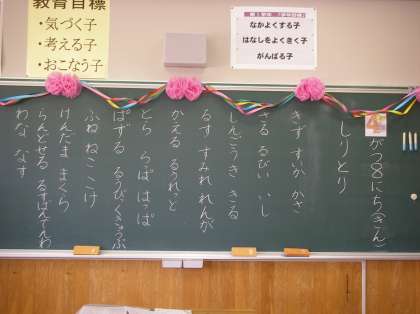 教育目標
・気づく子
・考える子
・おこなう子
なかよくする子
はなしをよくきく子
がんばる子
4がつ8にち(きんご)
しりとり
きず すいか かさ
さる るびい いし
しんごうき きる
るす すみれ れんが
かえる るうれっと
とら らっぱ はっぱ
ぱずる るうびくきゅうぶ
ふね ねこ こけ
けんだま まくら
らんどせる るすばんでんわ
わな なす